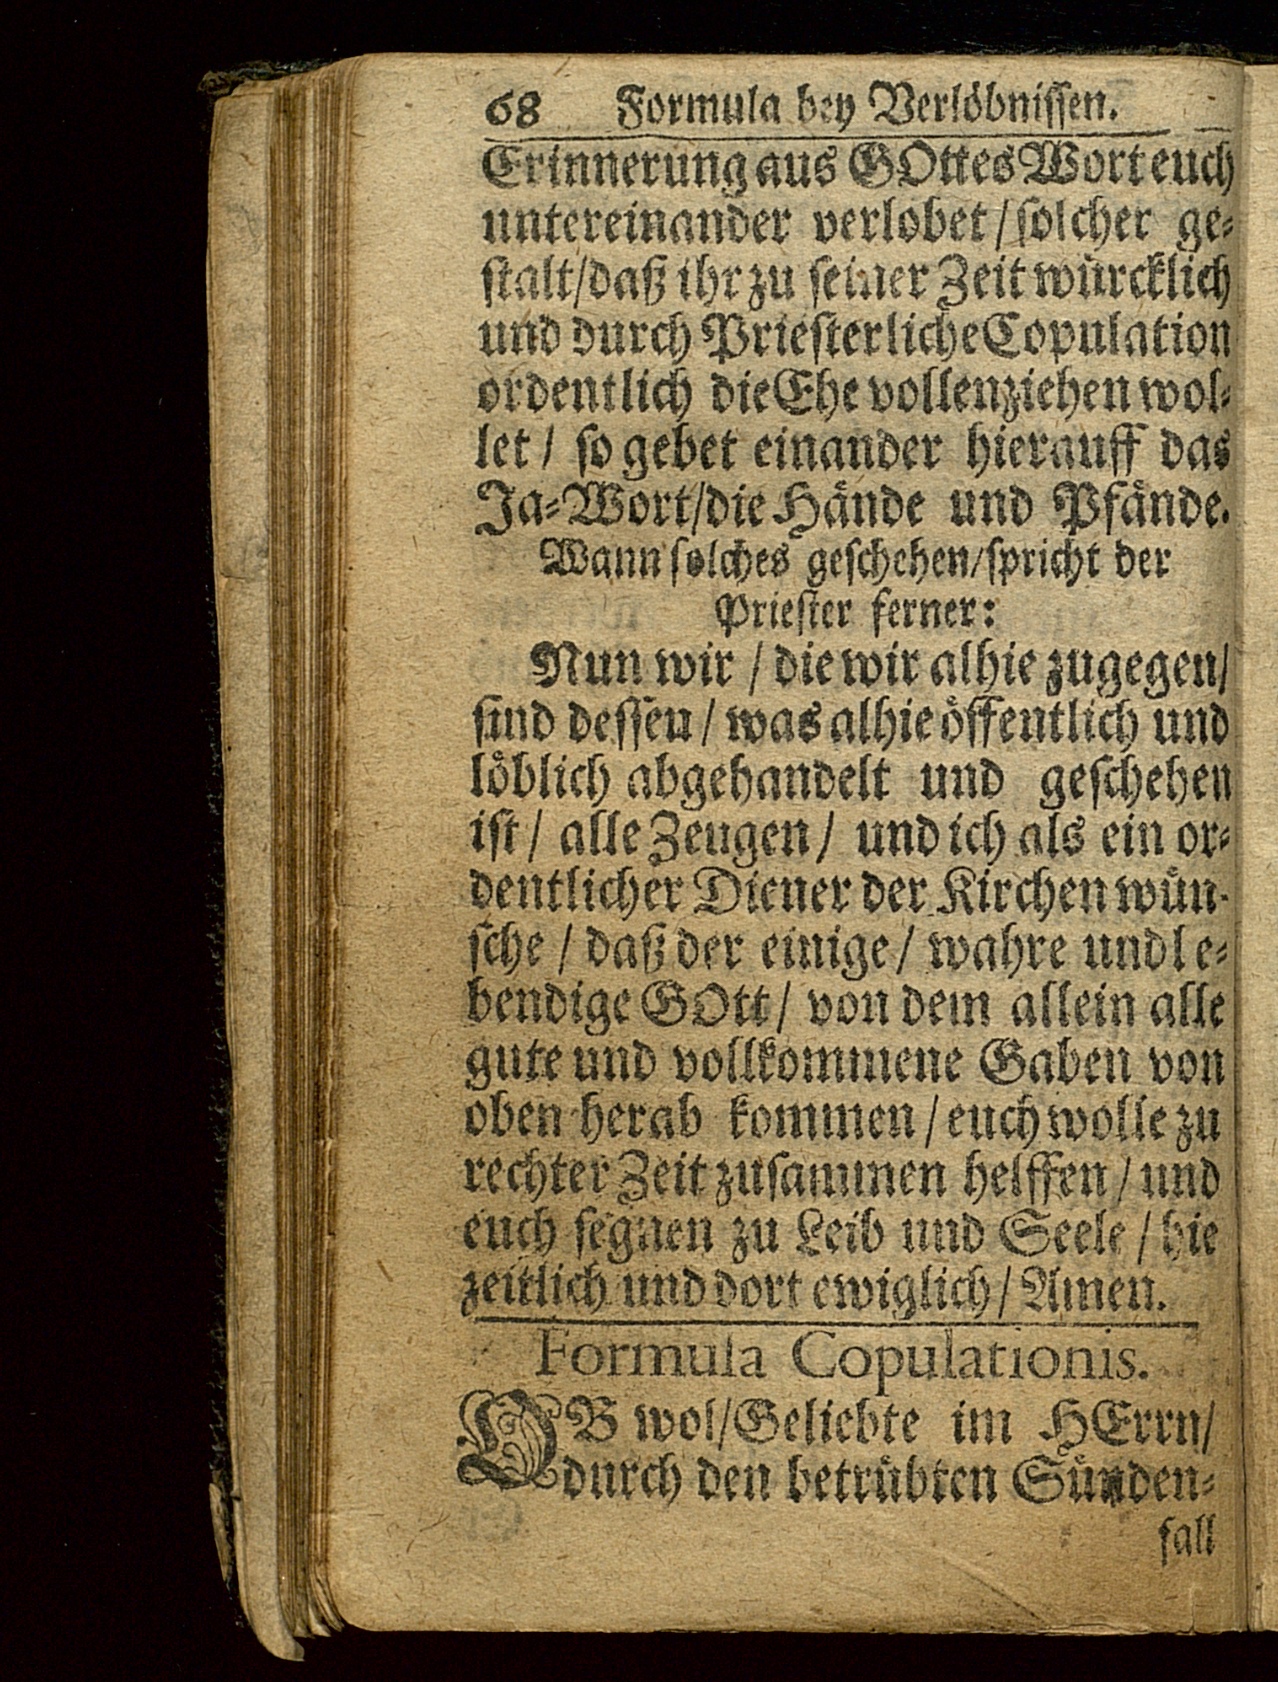 68 Formula bey Verlöbnissen.
Erinnerung aus GOttes Wort euch
untereinander verlobet / solcher ge-
stalt / daß ihr zu seiner Zeit würcklich
und durch Priesterliche Copulation
ordentlich die Ehe vollenziehen wol-
let / so gebet einander hierauff das
Ja-Wort / die Hände und Pfände.
Wann solches geschehen / spricht der
Priester ferner:
Nun wir / die wir alhie zugegen /
sind dessen / was alhie öffentlich und
löblich abgehandelt und geschehen
ist / alle Zeugen / und ich als ein or-
dentlicher Diener der Kirchen wün-
sche / daß der einige / wahre und le-
bendige GOtt / von dem allein alle
gute und vollkommene Gaben von
oben herab kommen / euch wolle zu
rechter Zeit zusammen helffen / und
euch segnen zu Leib und Seele / hie
zeitlich und dort ewiglich / Amen.
Formula Copulationis.
OB wol / Geliebte im HErrn /
durch den betrübten Sünden-
fall